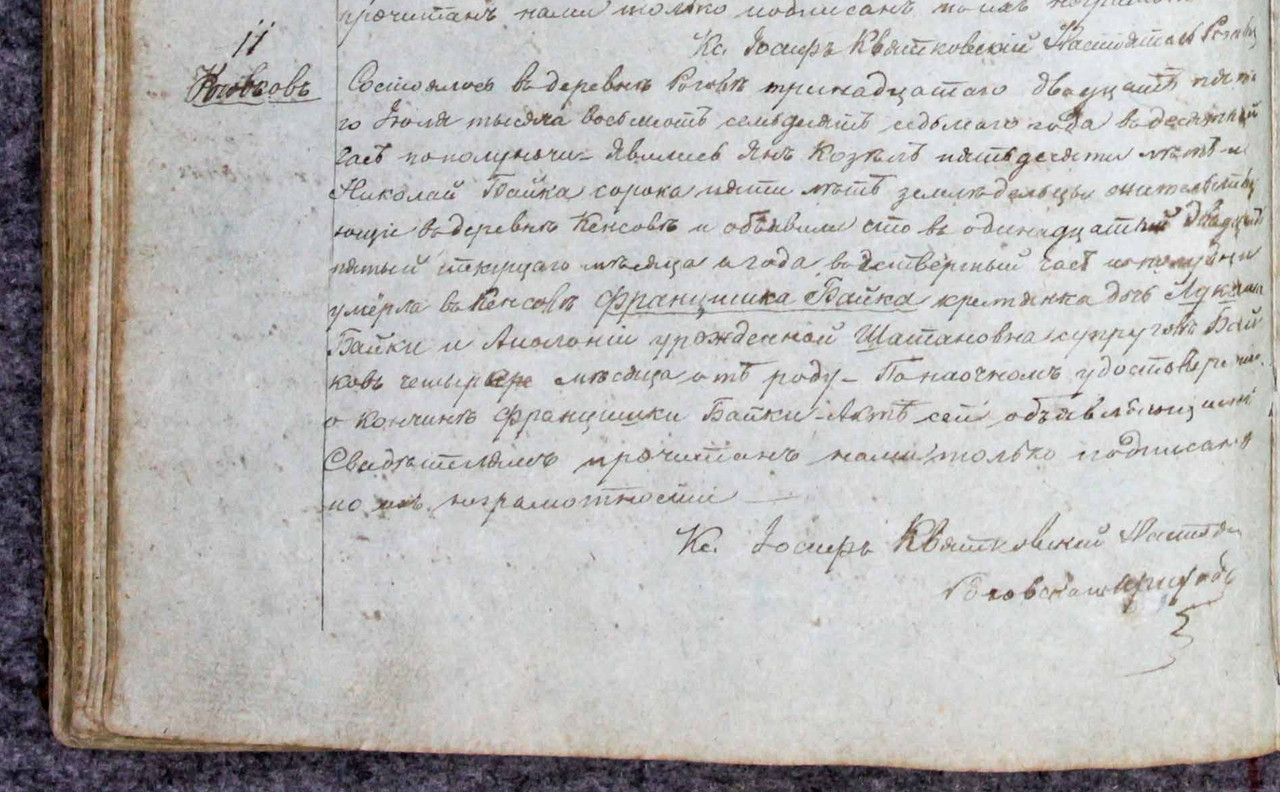 прочитанъ нами только подписанъ по ихъ
Кс. Іосифъ Квятковскій Настоятель
11
Состоялось въ деревнѣ Роговѣ тринадцатаго двадцать пята
го Іюля тысяча восемьсотъ семьдесятъ седьмаго года въ десятый
часъ пополуночи. Явились Янъ Козѣлъ пятьдесяти лѣтъ и
Николай Байка сорока пяти лѣтъ земледельцы жительству
ющіе въ деревнѣ Кенсовѣ и объявили что въ одинадцатый двадцать
пятый текущаго мѣсяца и года въ четвертый часъ пополудни
умерла въ Кенсовѣ Францишка Байка крестянка дочь
Байки и Аполоніи урожденной Шатановна супруговъ Бай
ковъ четыре мѣсяца отъ роду – По наочномъ удостовѣреніи
о кончинѣ Францишки Байки – Актъ сей объявляющимъ
Свидѣтелямъ прочитанъ нами только подписанъ
по ихъ неграмотности –
Кс. Іосифъ Квятковскій
Роговскаго прихода